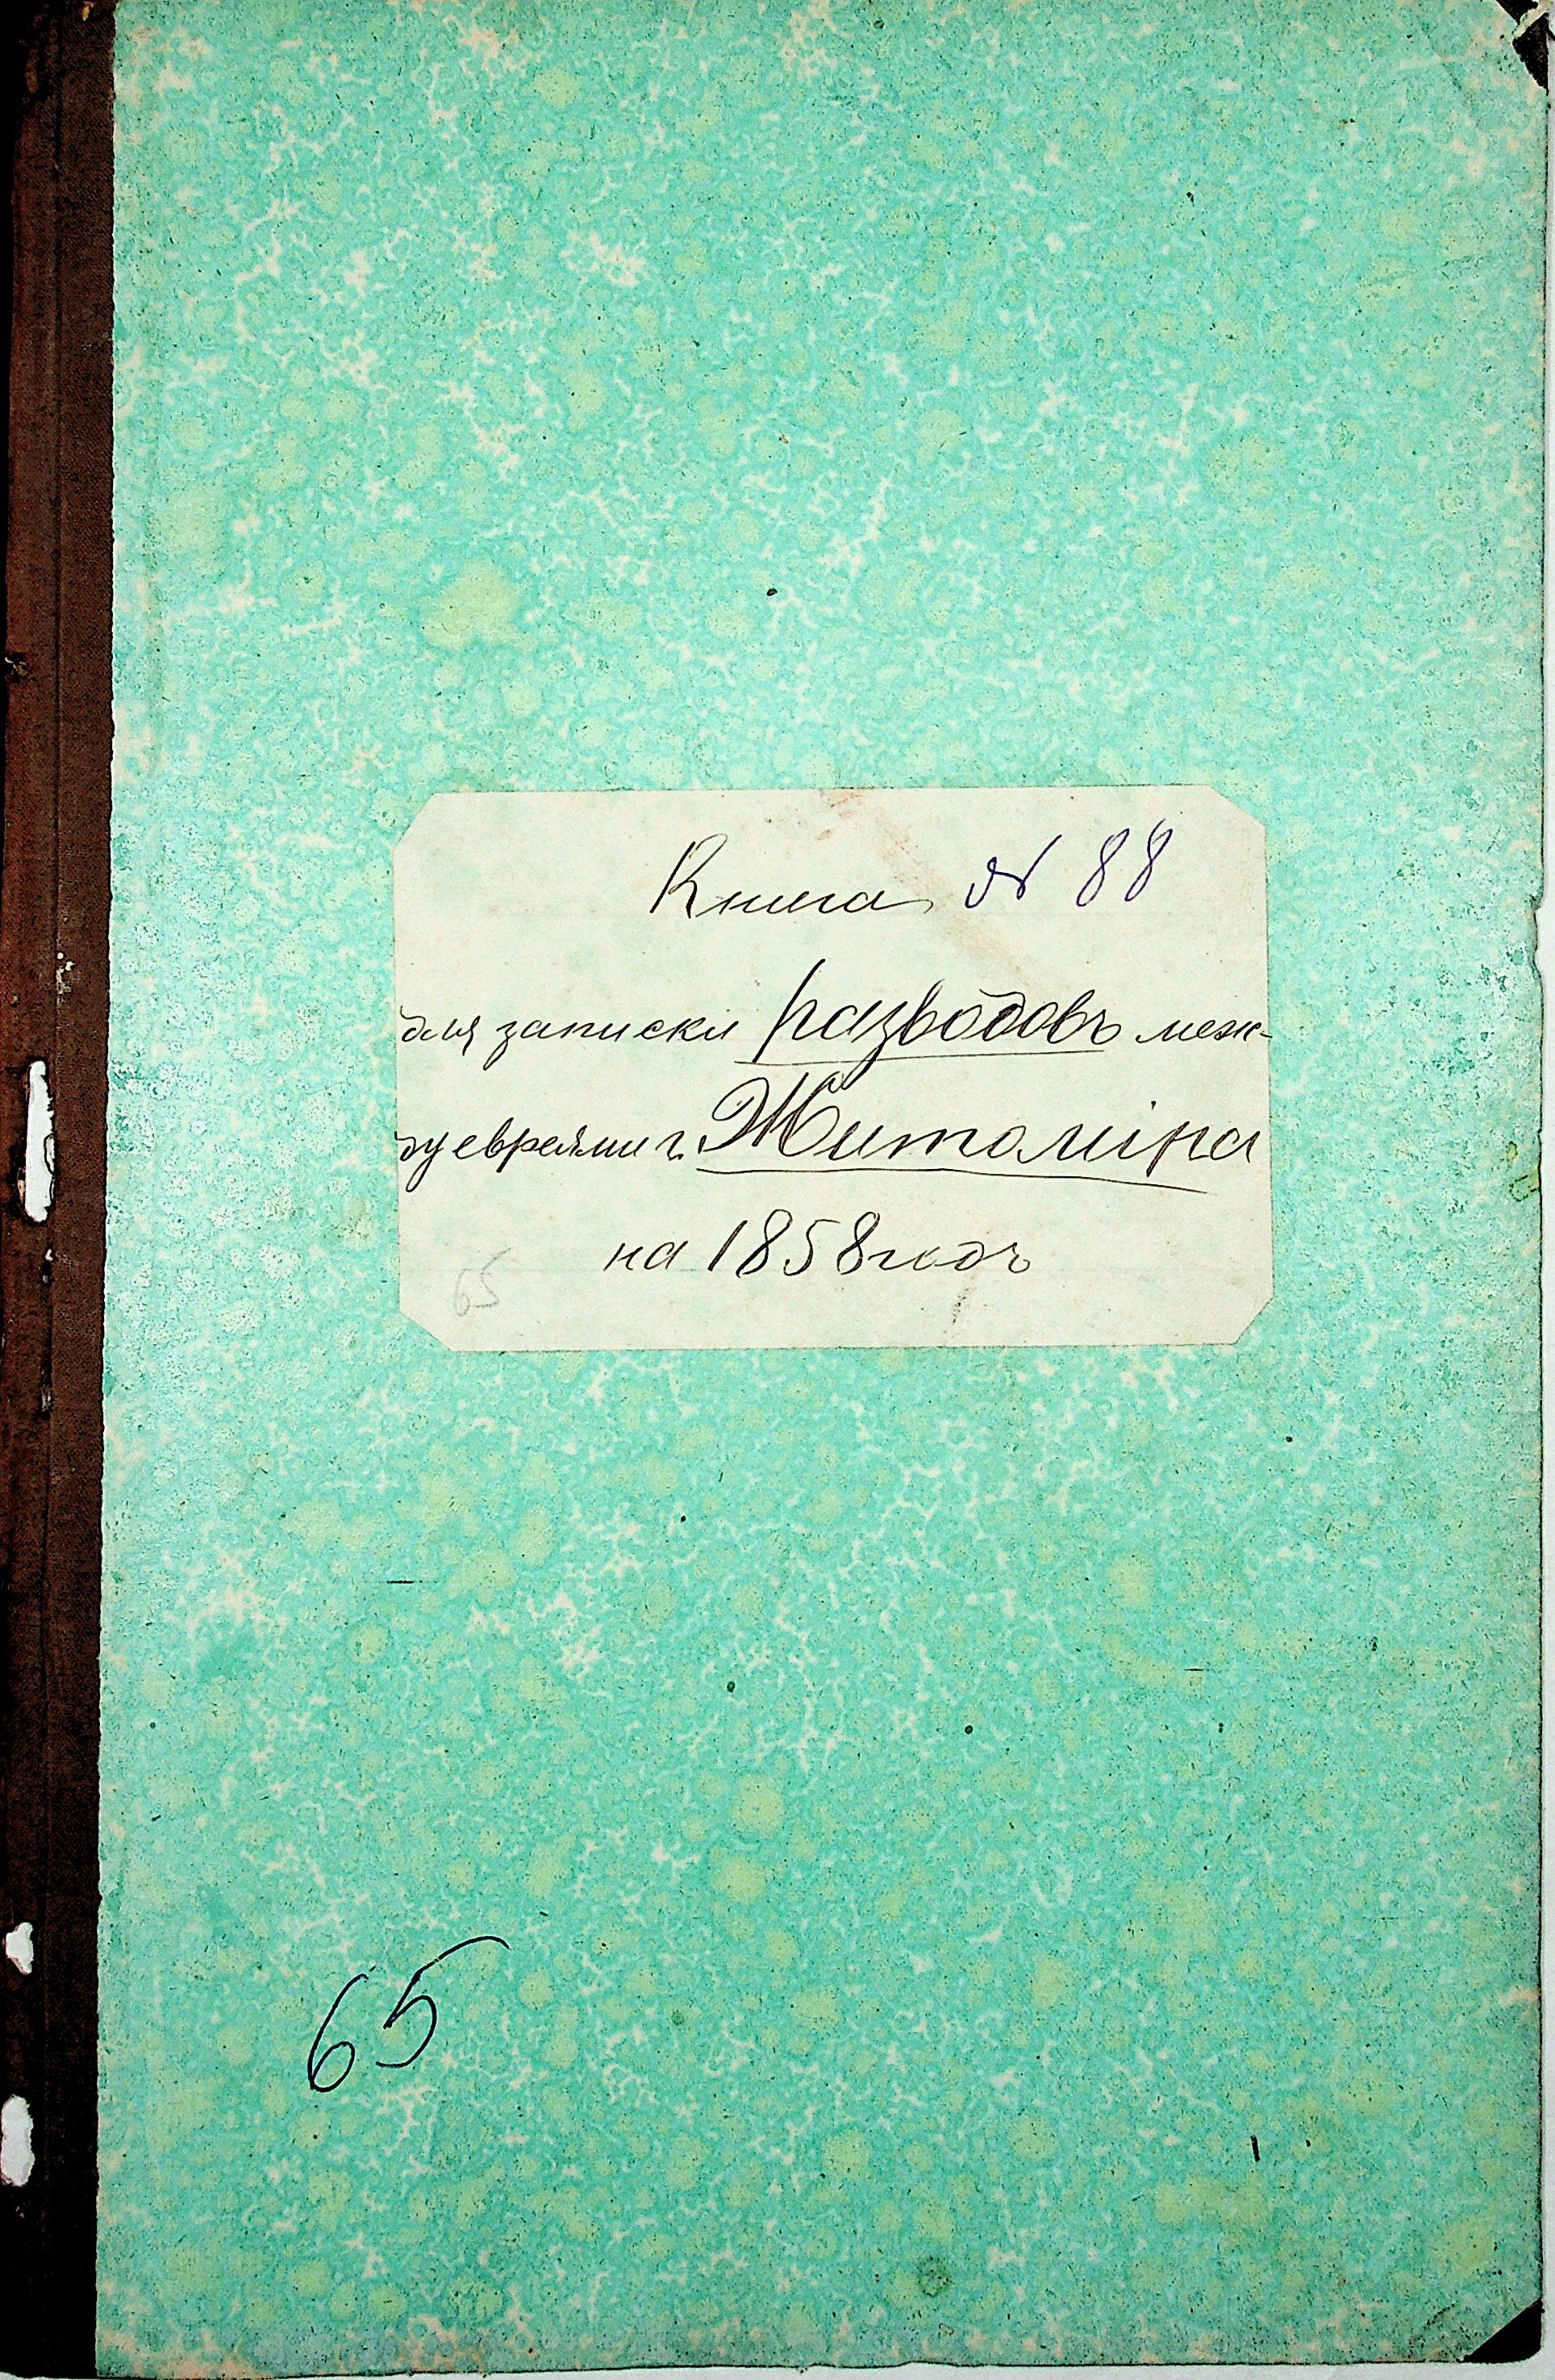 Книга № 88
для записки разводовъ меж-
ду евреями г. Житоміра
на 1858 годъ
65
65